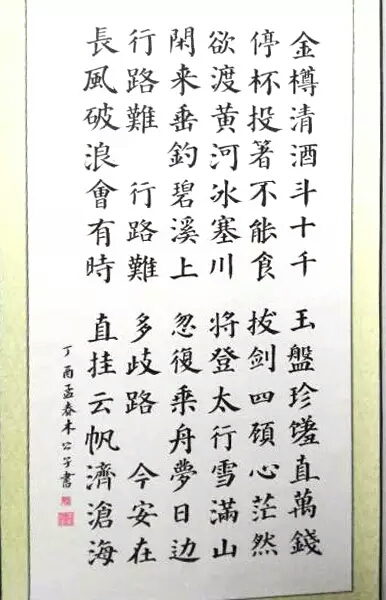 金樽清酒斗十千 玉盤珍饈直萬錢
停杯投著不能食 拔剑四頋心茫然
欲渡黄河冰塞川 將登太行雪滿山
閑来垂釣碧溪上 忽復乘舟夢日边
行路難 行路難 多歧路 今安在
長風破浪會有時 直挂云帆濟滄海
丁酉孟春木公子書